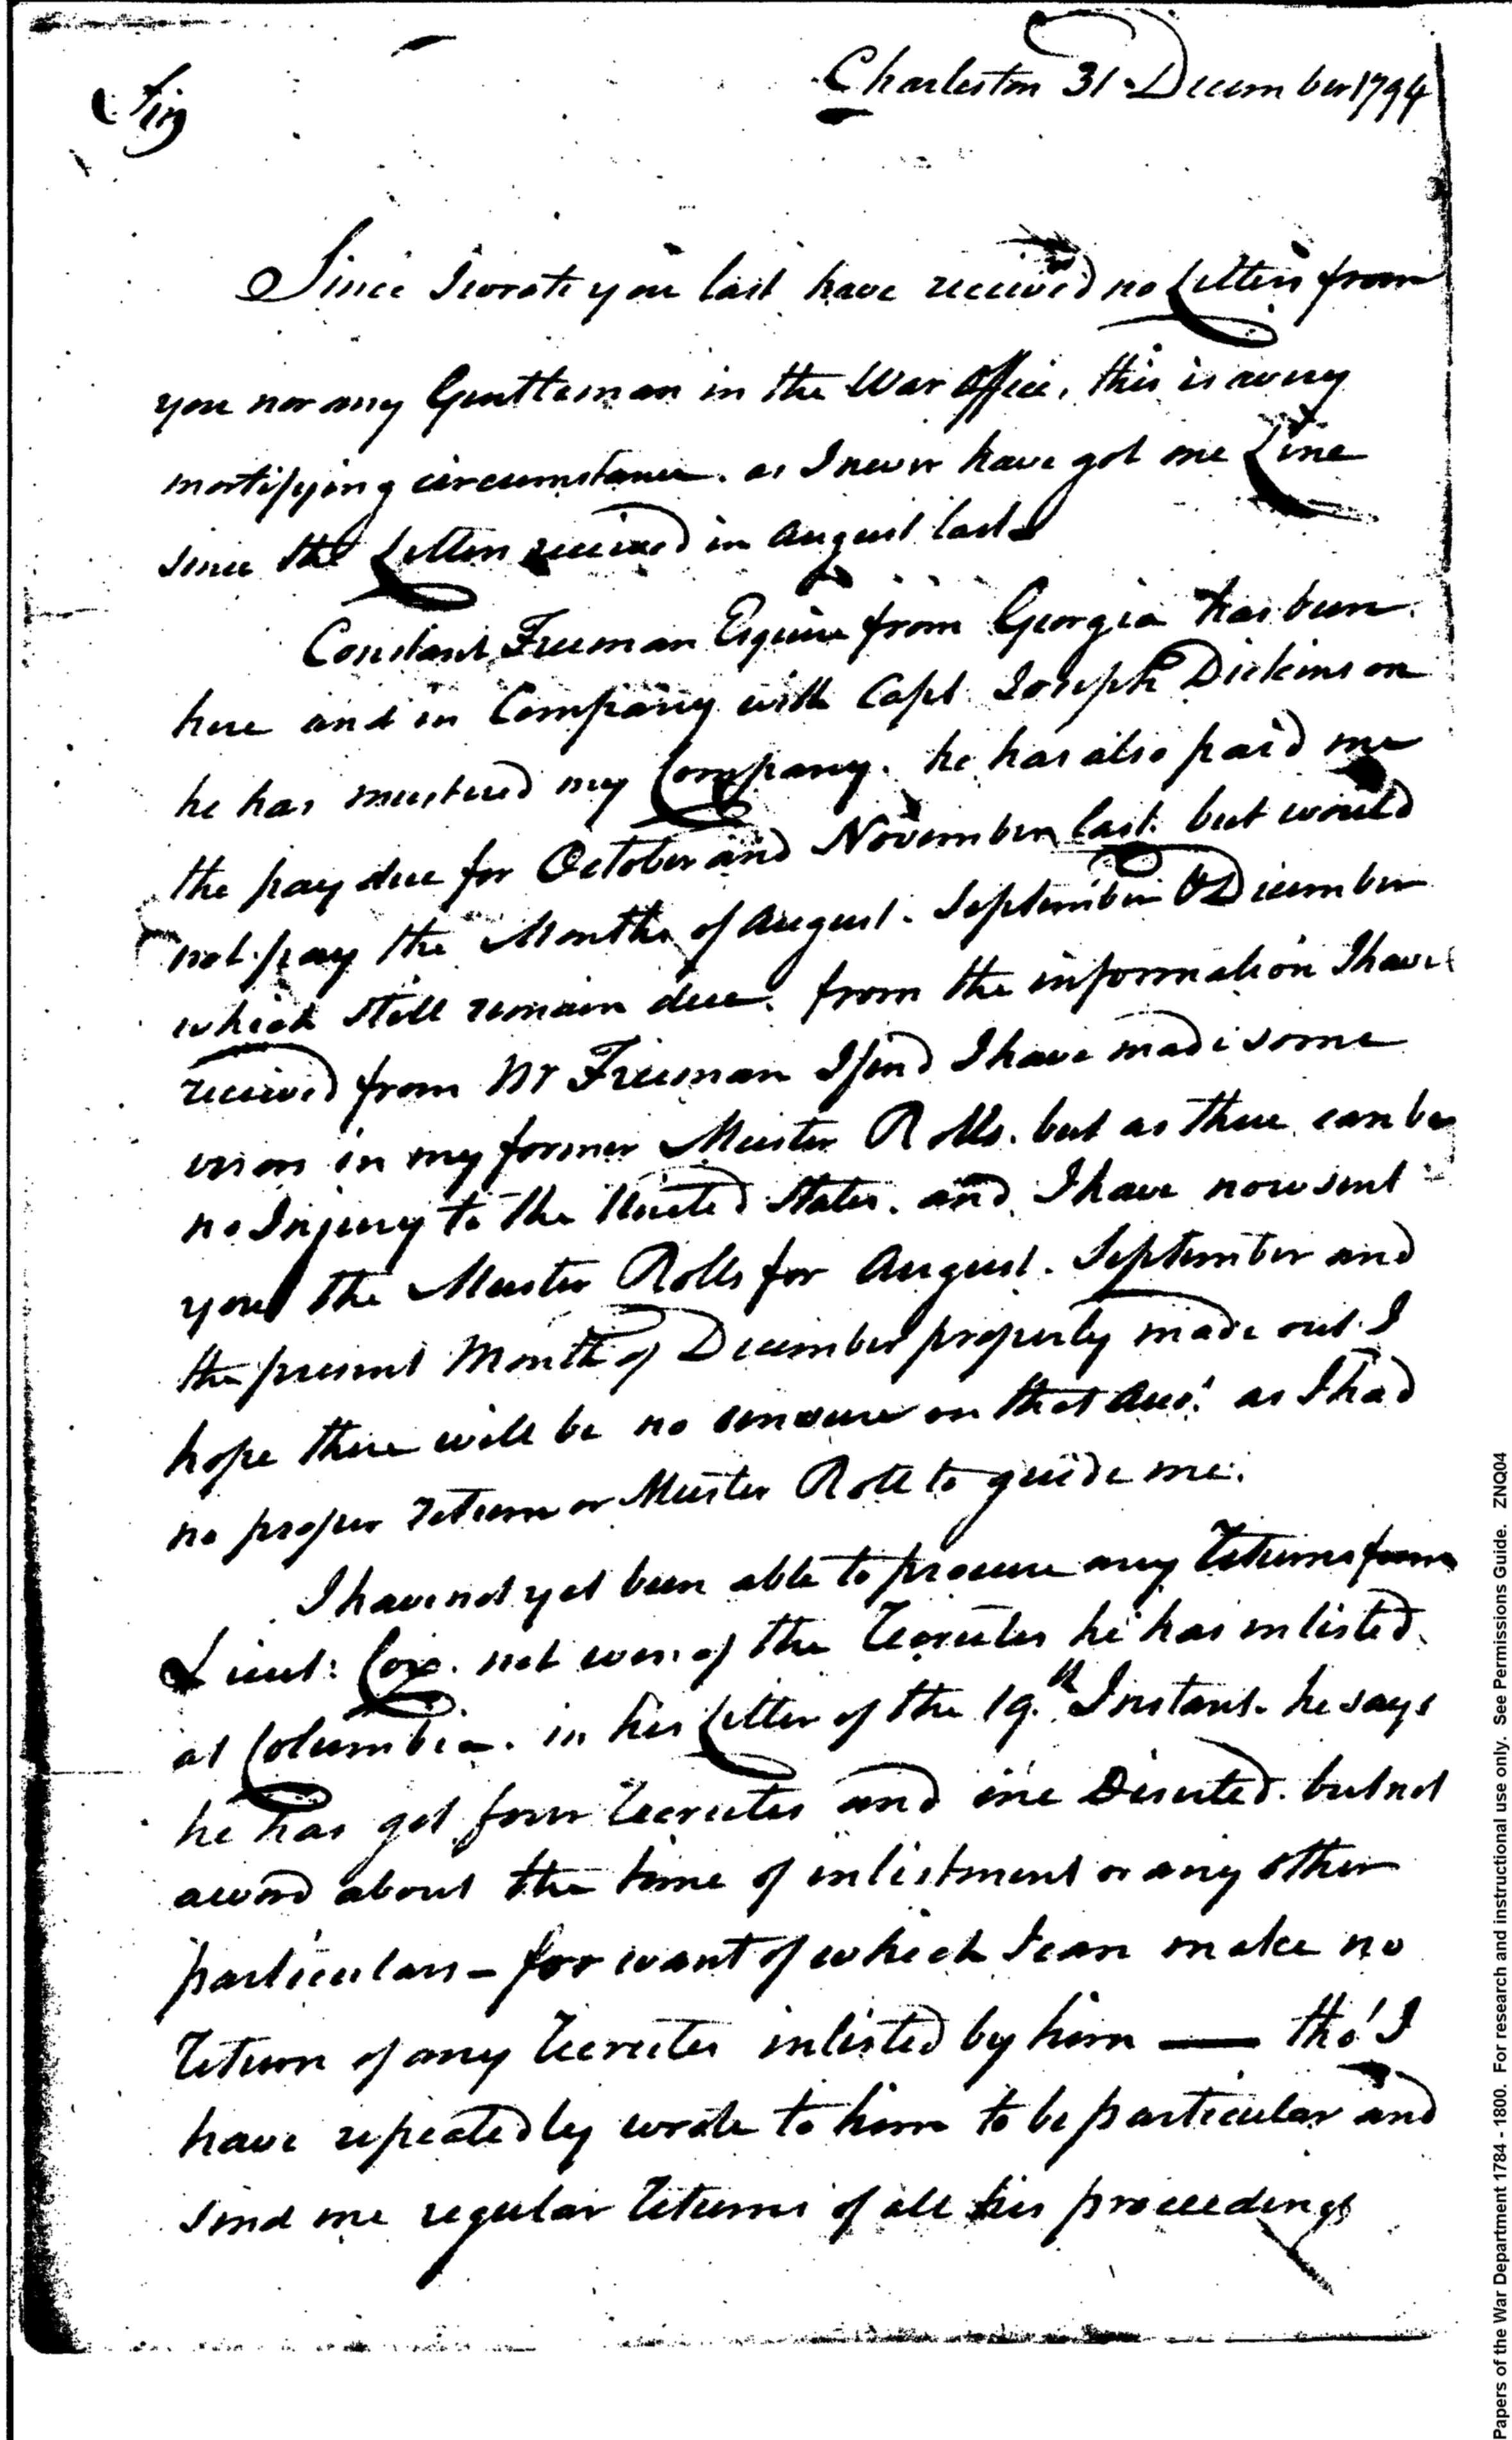 Charleston 31 December 1794
Sir
Since I wrote you last have received no Letters from
you nor any Gentleman in the War Office, this is a very
mortifying circumstance. as I never have got one Line
since the Letter received in August last
Constant Freeman Esquire from Georgia has been
here and in Company with Capt. Joseph Dickinson
he has mustered my Company. he has also paid me
the pay due for October and November last. but would
not pay the Months of August. September & December
which still remain due. from the information I have
received from Mr Freeman I find I have made some
errors in my former Muster Rolls. but as there can be
no Injury to the United States. and I have now sent
you the Muster Rolls for August. September and
the present Month of December properly made out. I
hope there will be no censure on that Acct. as I had
no proper return or Muster Roll to guide me.
I have not yet been able to procure any returns from
Lieut: Cox. not even of the recruites he has inlisted
at Columbia. in his Letter of the 19th Instant. he says
he has got four recruites and one Deserted. but not
a word about the time of inlistment or any other
particulars – for want of which I can make no
return of any recruites inlisted by him — tho' I
have repeatedly wrote to him to be particular and
send me regular returns of all his proceedings
Papers of the War Department 1784 - 1800. For research and instructional use only. See Permissions Guide. ZNQ04